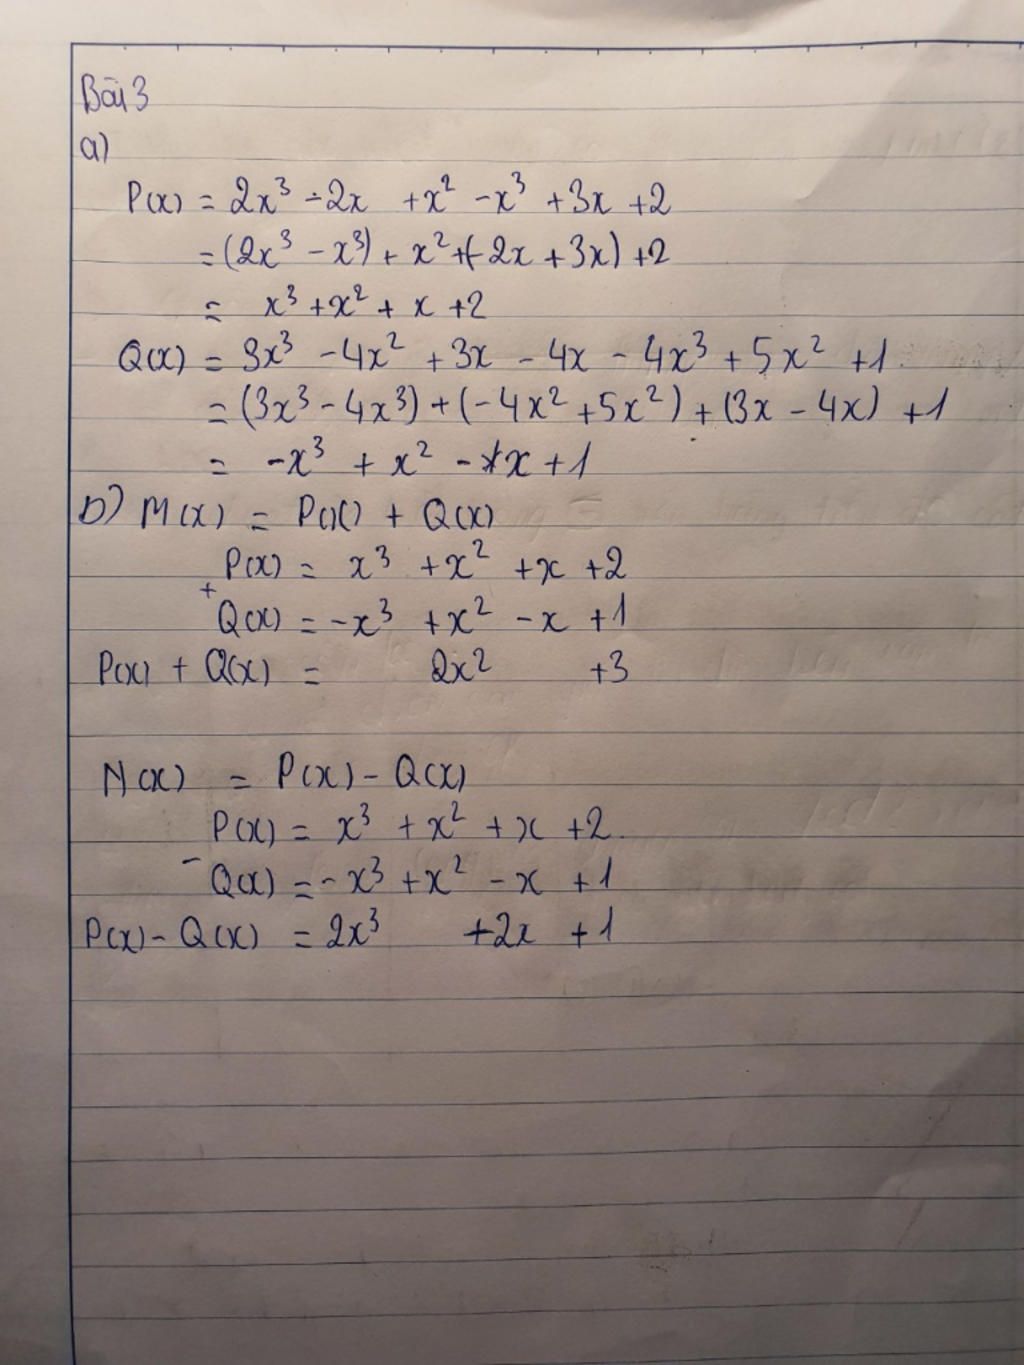 Bài 3
a)
P(x) = 2x³ - 2x + x² - x³ + 3x + 2
= (2x³ - x³) + x² + (-2x + 3x) + 2
= x³ + x² + x + 2
Q(x) = 3x³ - 4x² + 3x - 4x - 4x³ + 5x² + 1
= (3x³ - 4x³) + (-4x² + 5x²) + (3x - 4x) + 1
= -x³ + x² - x + 1
b) M(x) = P(x) + Q(x)
P(x) = x³ + x² + x + 2
+
Q(x) = -x³ + x² - x + 1
P(x) + Q(x) = 2x² + 3
N(x) = P(x) - Q(x)
P(x) = x³ + x² + x + 2
-
Q(x) = -x³ + x² - x + 1
P(x) - Q(x) = 2x³ + 2x + 1